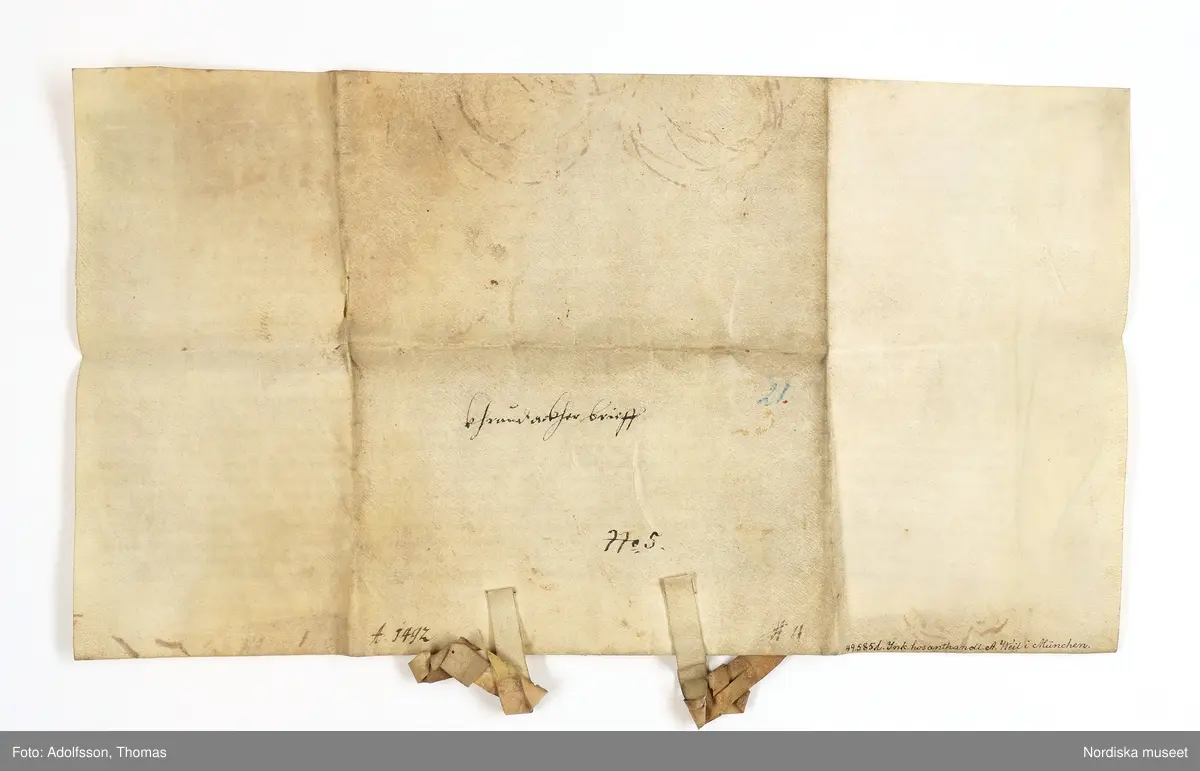 21.
3
brieff
No 5.
A. 1492
# 11
49.585d. Ink. hos anthandl. A. Weil i München.
Foto: Adolfsson, Thomas
Nordiska museet